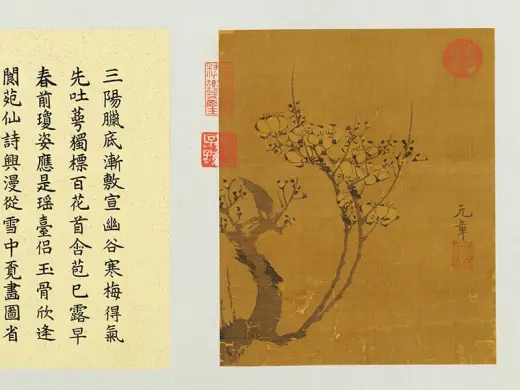 元章
三陽臘底漸敷宣幽谷寒梅得氣
先吐萼獨標百花首含苞已露早
春前瓊姿應是瑶臺侶玉骨欣逢
閬苑仙詩興漫從雪中覓畫圖省